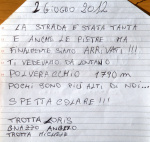 2 GIUGNO 2012
LA STRADA È STATA TANTA
E ANCHE LE PIETRE MA
FINALMENTE SIAMO ARRIVATI!!!
TI VEDEVAMO DA LONTANO
POLVERACCHIO 1790 m
POCHI SONO PIÙ ALTI DI NOI...
SPETTACOLARE!!!
TROTTA LORIS
TROTTA MICHELE